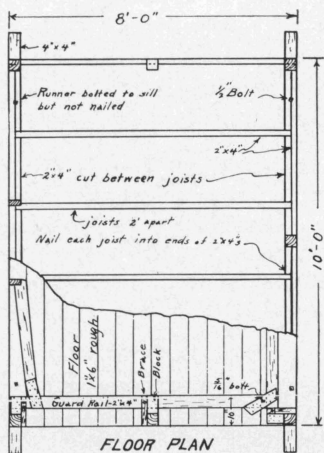 8'-0"
4"x4"
Runner bolted to sill
but not nailed
½" Bolt
2"x4"
2"x4" cut between joists
joists 2' apart
Nail each joist into ends of 2"x4"s
10'-0"
Floor
1"x6" rough
Brace
Block
bolt
Guard Rail-2"x4"
FLOOR PLAN